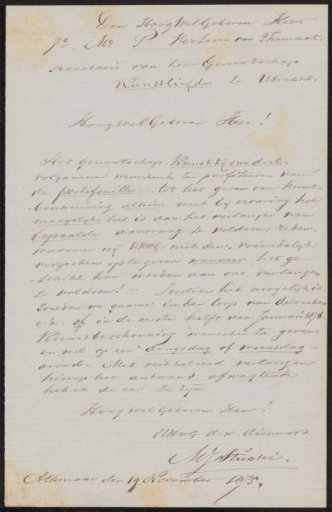 Den HoogWelGeboren Heer
Jr. Mr. P Verloren van Themaat
Secretaris van het Genootschap
Kunstliefde te Utrecht.
HoogWelGeboren Heer!
Het Genootschap Kunst zij ons doel
wenschende te profiteeren van
de portefeuilles tot het geven van Kunst-
beschouwing alhier, weet bij ervaring hoe
moeyelijk het is aan het verlangen van
bepaalde aanvraag te voldoen; reden,
waarom wij UHWG. mits dezen, vriendelijk
verzoeken opte geven wanneer het ge-
schikt kan worden aan ons verlangen
te voldoen! — Indien het mogelijk is
zouden we gaarne in den loop van december
e.k. of in de eerste helft van Januari 1876
Kunstbeschouwing wenschen te geven
en wel op een dingsdag of woensdag-
avond. Met verlangen
hierop het antwoord afwagtende
heb ik de eer te zijn
HoogWelGeboren Heer!
UHWG d.w. dienaar
Alkmaar den 19 November 1875.